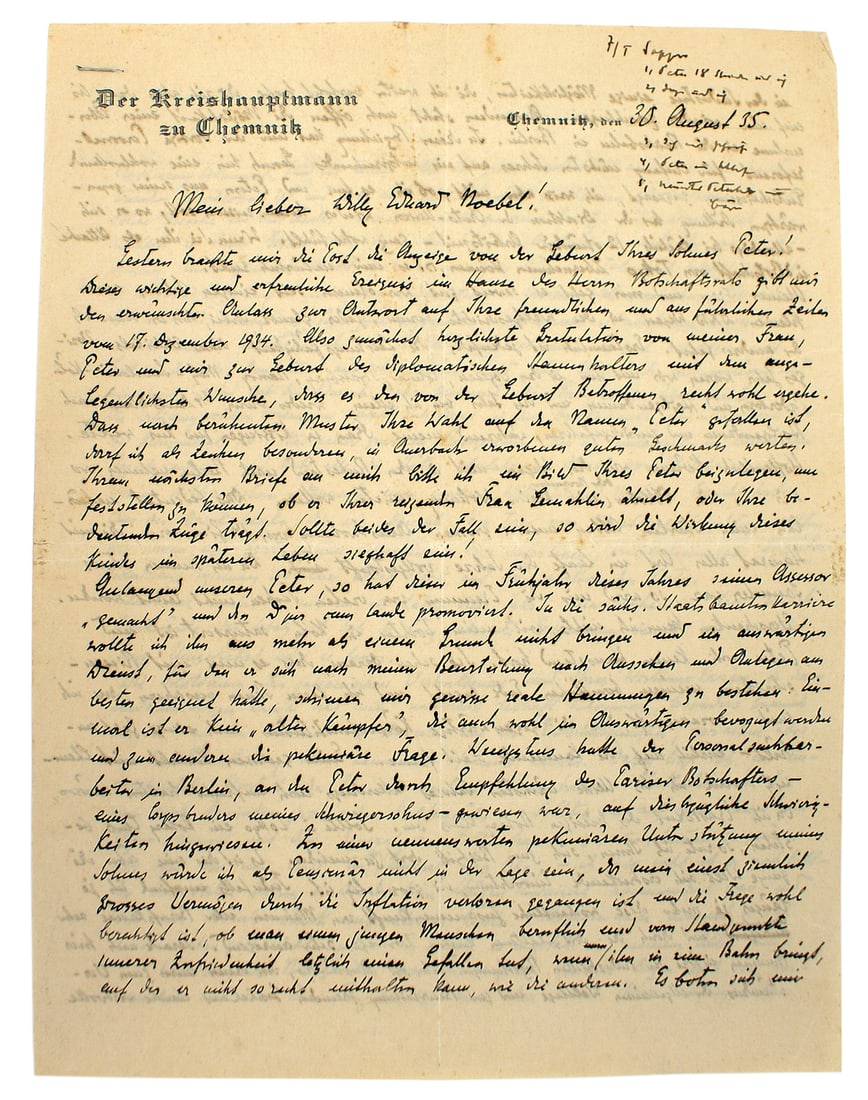 Der Kreishauptmann
zu Chemnitz
Chemnitz, den 30. August 35.
Mein lieber Willy Eduard Noebel!
Gestern brachte mir die Post die Anzeige von der Geburt Ihres Sohnes Peter!
Dieses wichtige und erfreuliche Ereignis im Hause des Herrn Botschaftsrats gibt mir
den erwünschten Anlass zur Antwort auf Ihre freundlichen und ausführlichen Zeilen
vom 17. Dezember 1934. Also zunächst herzlichste Gratulation von meiner Frau,
Peter und mir zur Geburt des diplomatischen Stammhalters mit dem ange-
legentlichsten Wunsche, dass es den von der Geburt Betroffenen recht wohl ergehe.
Dass nach berühmtem Muster Ihre Wahl auf den Namen „Peter" gefallen ist,
darf ich als Zeichen besonderen, in Auerbach erworbenen guten Geschmacks werten!
Ihrem nächsten Briefe an mich bitte ich ein Bild Ihres Peter beizulegen, um
feststellen zu können, ob er Ihrer reizenden Frau Gemahlin ähnelt, oder Ihre be-
deutenden Züge trägt. Sollte beides der Fall sein, so wird die Wirkung dieses
Kindes im späteren Leben sieghaft sein!
Anlangend unseren Peter, so hat dieser im Frühjahr dieses Jahres seinen Assessor
„gemacht" und den D'jur cum laude promoviert. In die sächs. Staatsbeamtenkarriere
wollte ich ihn aus mehr als einem Grunde nicht bringen und im auswärtigen
Dienst, für den er sich nach meiner Beurteilung nach Aussehen und Anlagen am
besten geeignet hätte, schienen mir gewisse reale Hemmungen zu bestehen: Ein-
mal ist er kein „alter Kämpfer", die auch wohl im Auswärtigen bevorzugt werden
und zum anderen die pekuniäre Frage. Wenigstens hatte der Personalsachbear-
beiter in Berlin, an den Peter durch Empfehlung des Pariser Botschafters –
eines Corpsbruders meines Schwiegersohns – gewiesen war, auf diesbezügliche Schwierig-
keiten hingewiesen. Zu einer nennenswerten pekuniären Unterstützung meines
Sohnes würde ich als Pensionär nicht in der Lage sein, da mein einst ziemlich
grosses Vermögen durch die Inflation verloren gegangen ist und die Frage wohl
berechtigt ist, ob man einem jungen Menschen beruflich und vom Standpunkte
innerer Zufriedenheit letzlich einen Gefallen tut, wenn man ihn in eine Bahn bringt,
auf der er nicht so recht mithalten kann, wie die anderen. Es boten sich mir